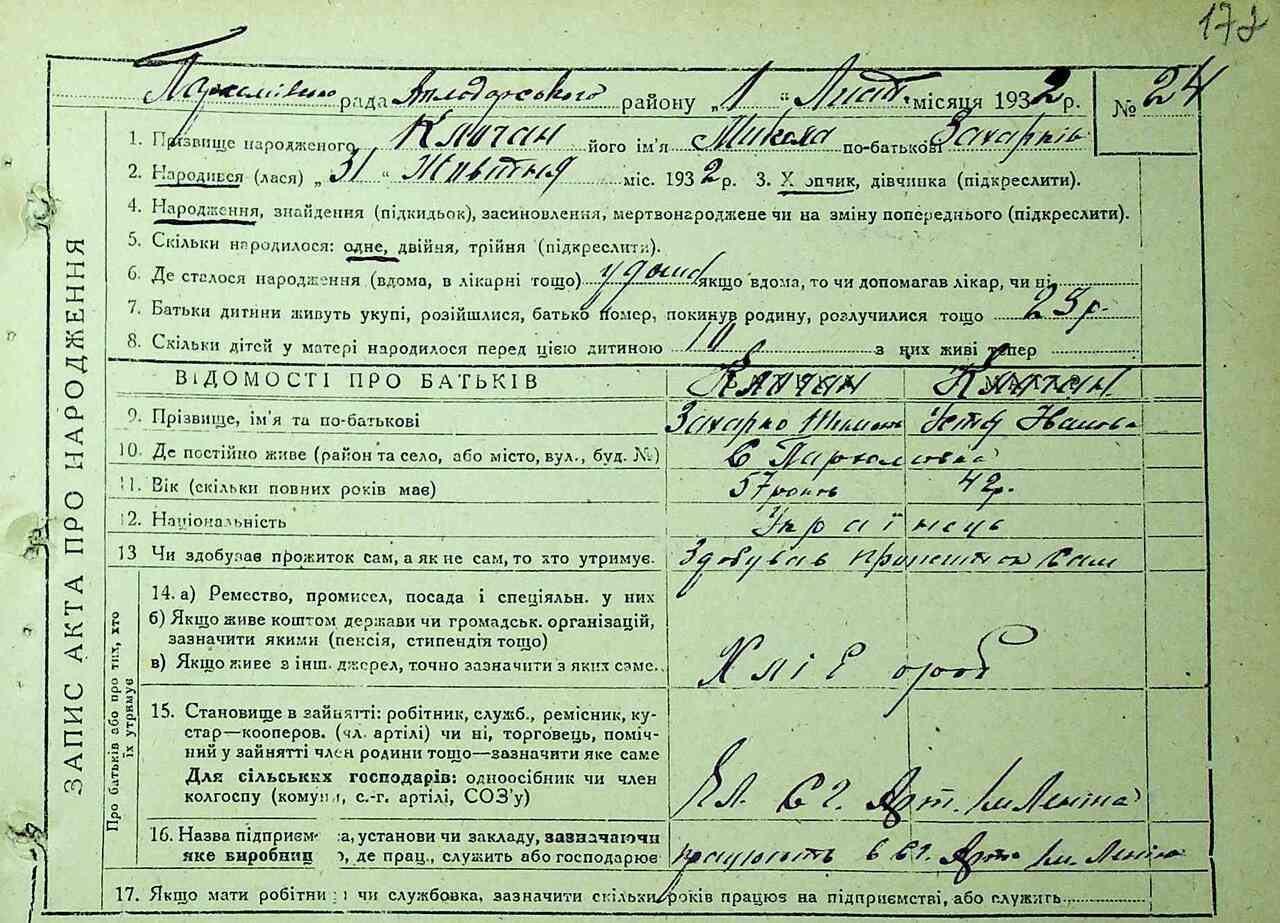 172
Пархомівською рада Аполярського району „1“ Лист. місяця 1932 р. № 24
1. Прізвище народженого Ключан його ім'я Микола по-батькові Захарків
2. Народився (лася) „31“ Жовтня міс. 1932 р. 3. Х опчик, дівчинка (підкреслити).
4. Народження, знайдення (підкидьок), засиновлення, мертвонароджене чи на зміну попереднього (підкреслити).
5. Скільки народилося: одне, двійня, трійня (підкреслити).
6. Де сталося народження (вдома, в лікарні тощо) у дома якщо вдома, то чи допомагав лікар, чи ні
7. Батьки дитини живуть укупі, розійшлися, батько помер, покинув родину, розлучилися тощо 23 р.
8. Скільки дітей у матері народилося перед цією дитиною 10 з них живі тепер
ВІДОМОСТІ ПРО БАТЬКІВ Ключан Ключан
9. Прізвище, ім'я та по-батькові Захарко
10. Де постійно живе (район та село, або місто, вул., буд. №) С Пархомовка
11. Вік (скільки повних років має) 57 років 42 р.
12. Національність Українець
13 Чи здобуває прожиток сам, а як не сам, то хто утримує. Здобував прожиток сам
14. а) Ремество, промисел, посада і спеціяльн. у них
б) Якщо живе коштом держави чи громадськ. організацій,
зазначити якими (пенсія, стипендія тощо)
в) Якщо живе з інш. джерел, точно зазначити з яких саме. Хлібороб
15. Становище в зайнятті: робітник, служб., ремісник, ку-
стар—кооперов. (чл. артілі) чи ні, торговець, поміч-
ний у зайнятті член родини тощо—зазначити яке саме
Для сільських господарів: одноосібник чи член
колгоспу (комуни, с.-г. артілі, СОЗ'у) Чл. С г. Арт. Ім Леніна
16. Назва підприєм ва, установи чи закладу, зазначаючи
яке виробниц о, де прац., служить або господарює працюють в с г. Арт. Ім. Леніна
17. Якщо мати робітни чи службовка, зазначити скільки років працює на підприємстві, або служить
ЗАПИС АКТА ПРО НАРОДЖЕННЯ
Про батьків або про тих, хто
їх утримує